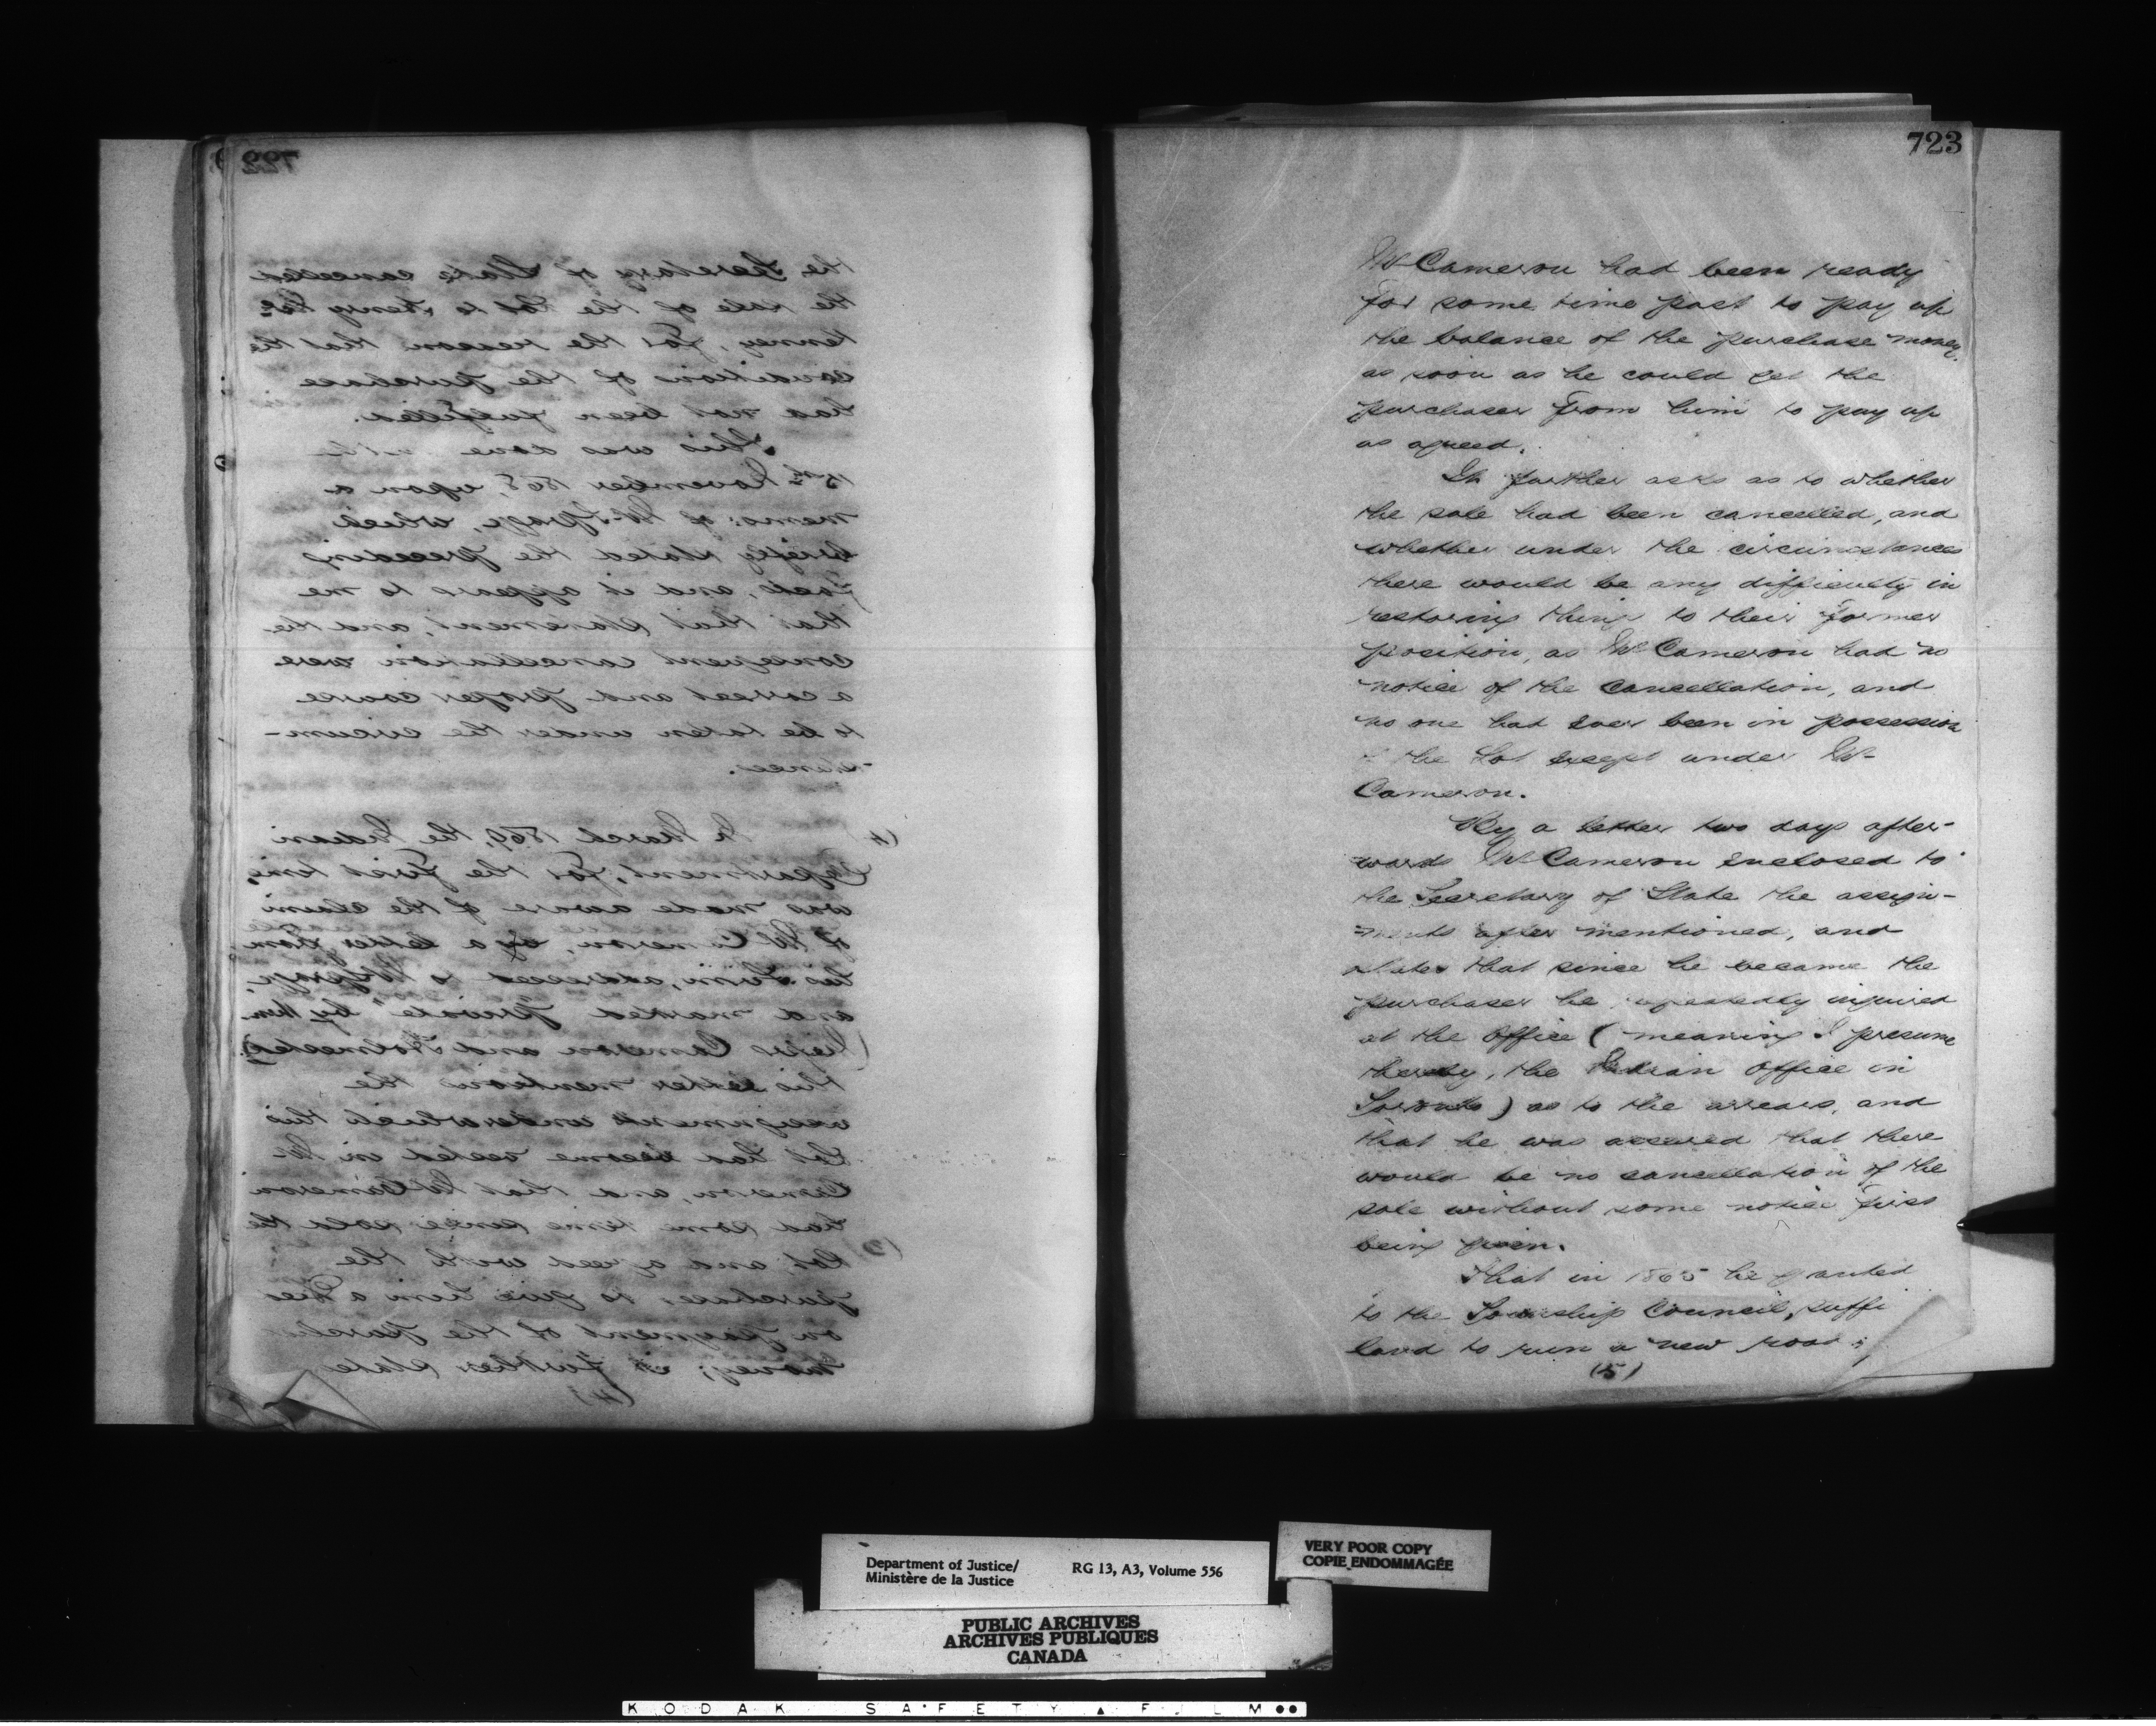 723
Mr Cameron had been ready
for some time past to pay up
the balance of the purchase money,
as soon as he could get the
purchaser from him to pay up
as agreed.
It further asks as to whether
the sale had been cancelled, and
whether under the circumstances
there would be any difficulty in
restoring things to their former
position, as Mr Cameron had no
notice of the cancellation, and
no one had ever been in possession
the Lot except under Mr
Cameron.
By a letter two days after-
wards Mr Cameron enclosed to
the Secretary of State the assign-
ments after mentioned, and
states that since he became the
purchaser he repeatedly inquired
at the office (meaning I presume
thereby, the Indian Office in
Toronto) as to the arrears, and
that he was assured that there
would be no cancellation of the
sale without some notice first
being given.
That in 1865 he granted
to the Township Council, suffi
land to run a new road
(5)
722
the Secretary of State cancelled
the sale of the Lot to Henry
for the reason that the
condition of the purchase
had not been fulfilled.
This was done
15th November 1868, upon a
memo: of Mr Spragge, which
briefly stated the preceding
facts, and it appears to me
that that statement, and the
consequent cancellation were
a correct and proper course
to be taken under the circum-
-stances.
In March 1869, the Indian
Department, for the first time,
was made aware of the claim
of Mr Cameron, by a letter from
his Firm, addressed to Mr Spragge,
and marked "private" by them
Cameron and
this letter mentions the
assignments under which this
Lot had become vested in Mr
Cameron, and that Mr Cameron
had some time since sold the
Lot, and agreed with the
purchaser to give him a Deed
on payment of the purchase
money; it further states
(4)
Department of Justice/
Ministère de la Justice
RG 13, A3, Volume 556
VERY POOR COPY
COPIE ENDOMMAGÉE
PUBLIC ARCHIVES
ARCHIVES PUBLIQUES
CANADA
KODAK SAFETY FILM